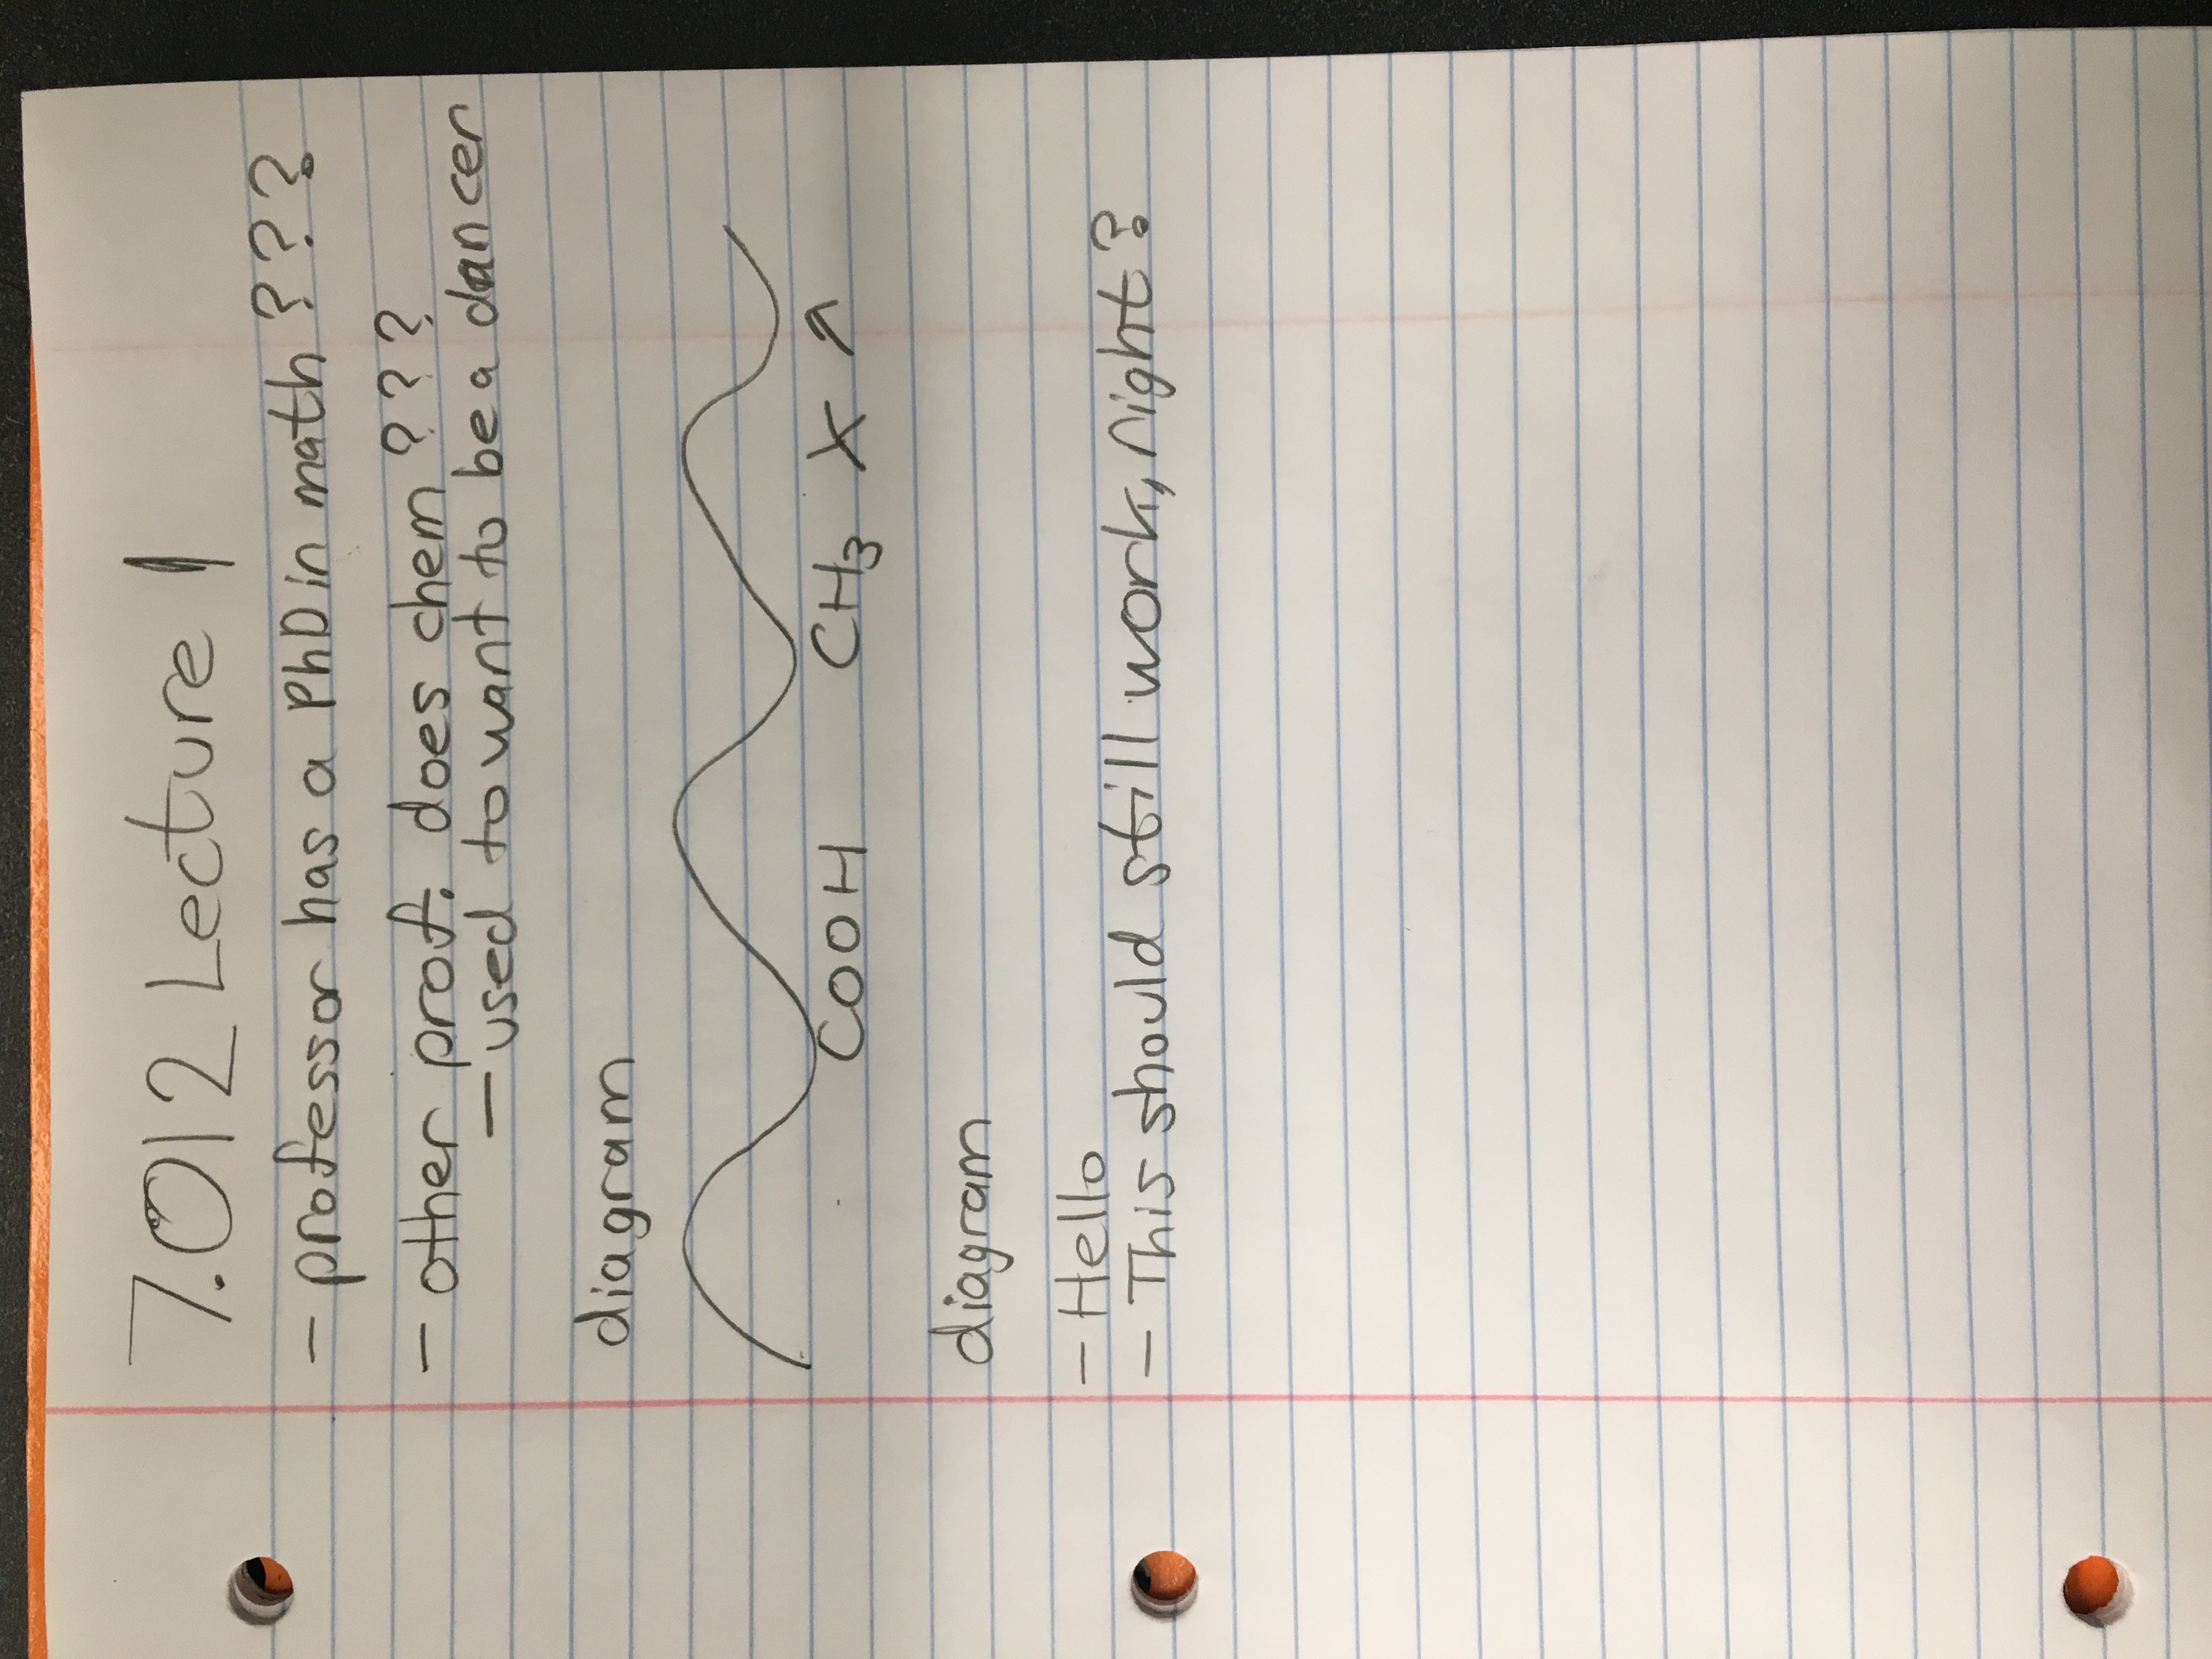 7.012 Lecture 1
- professor has a PhD in math ???
- other prof. does chem ???
- used to want to be a dancer
diagram
COOH CH3 X ↗
diagram
- Hello
- This should still work, right?